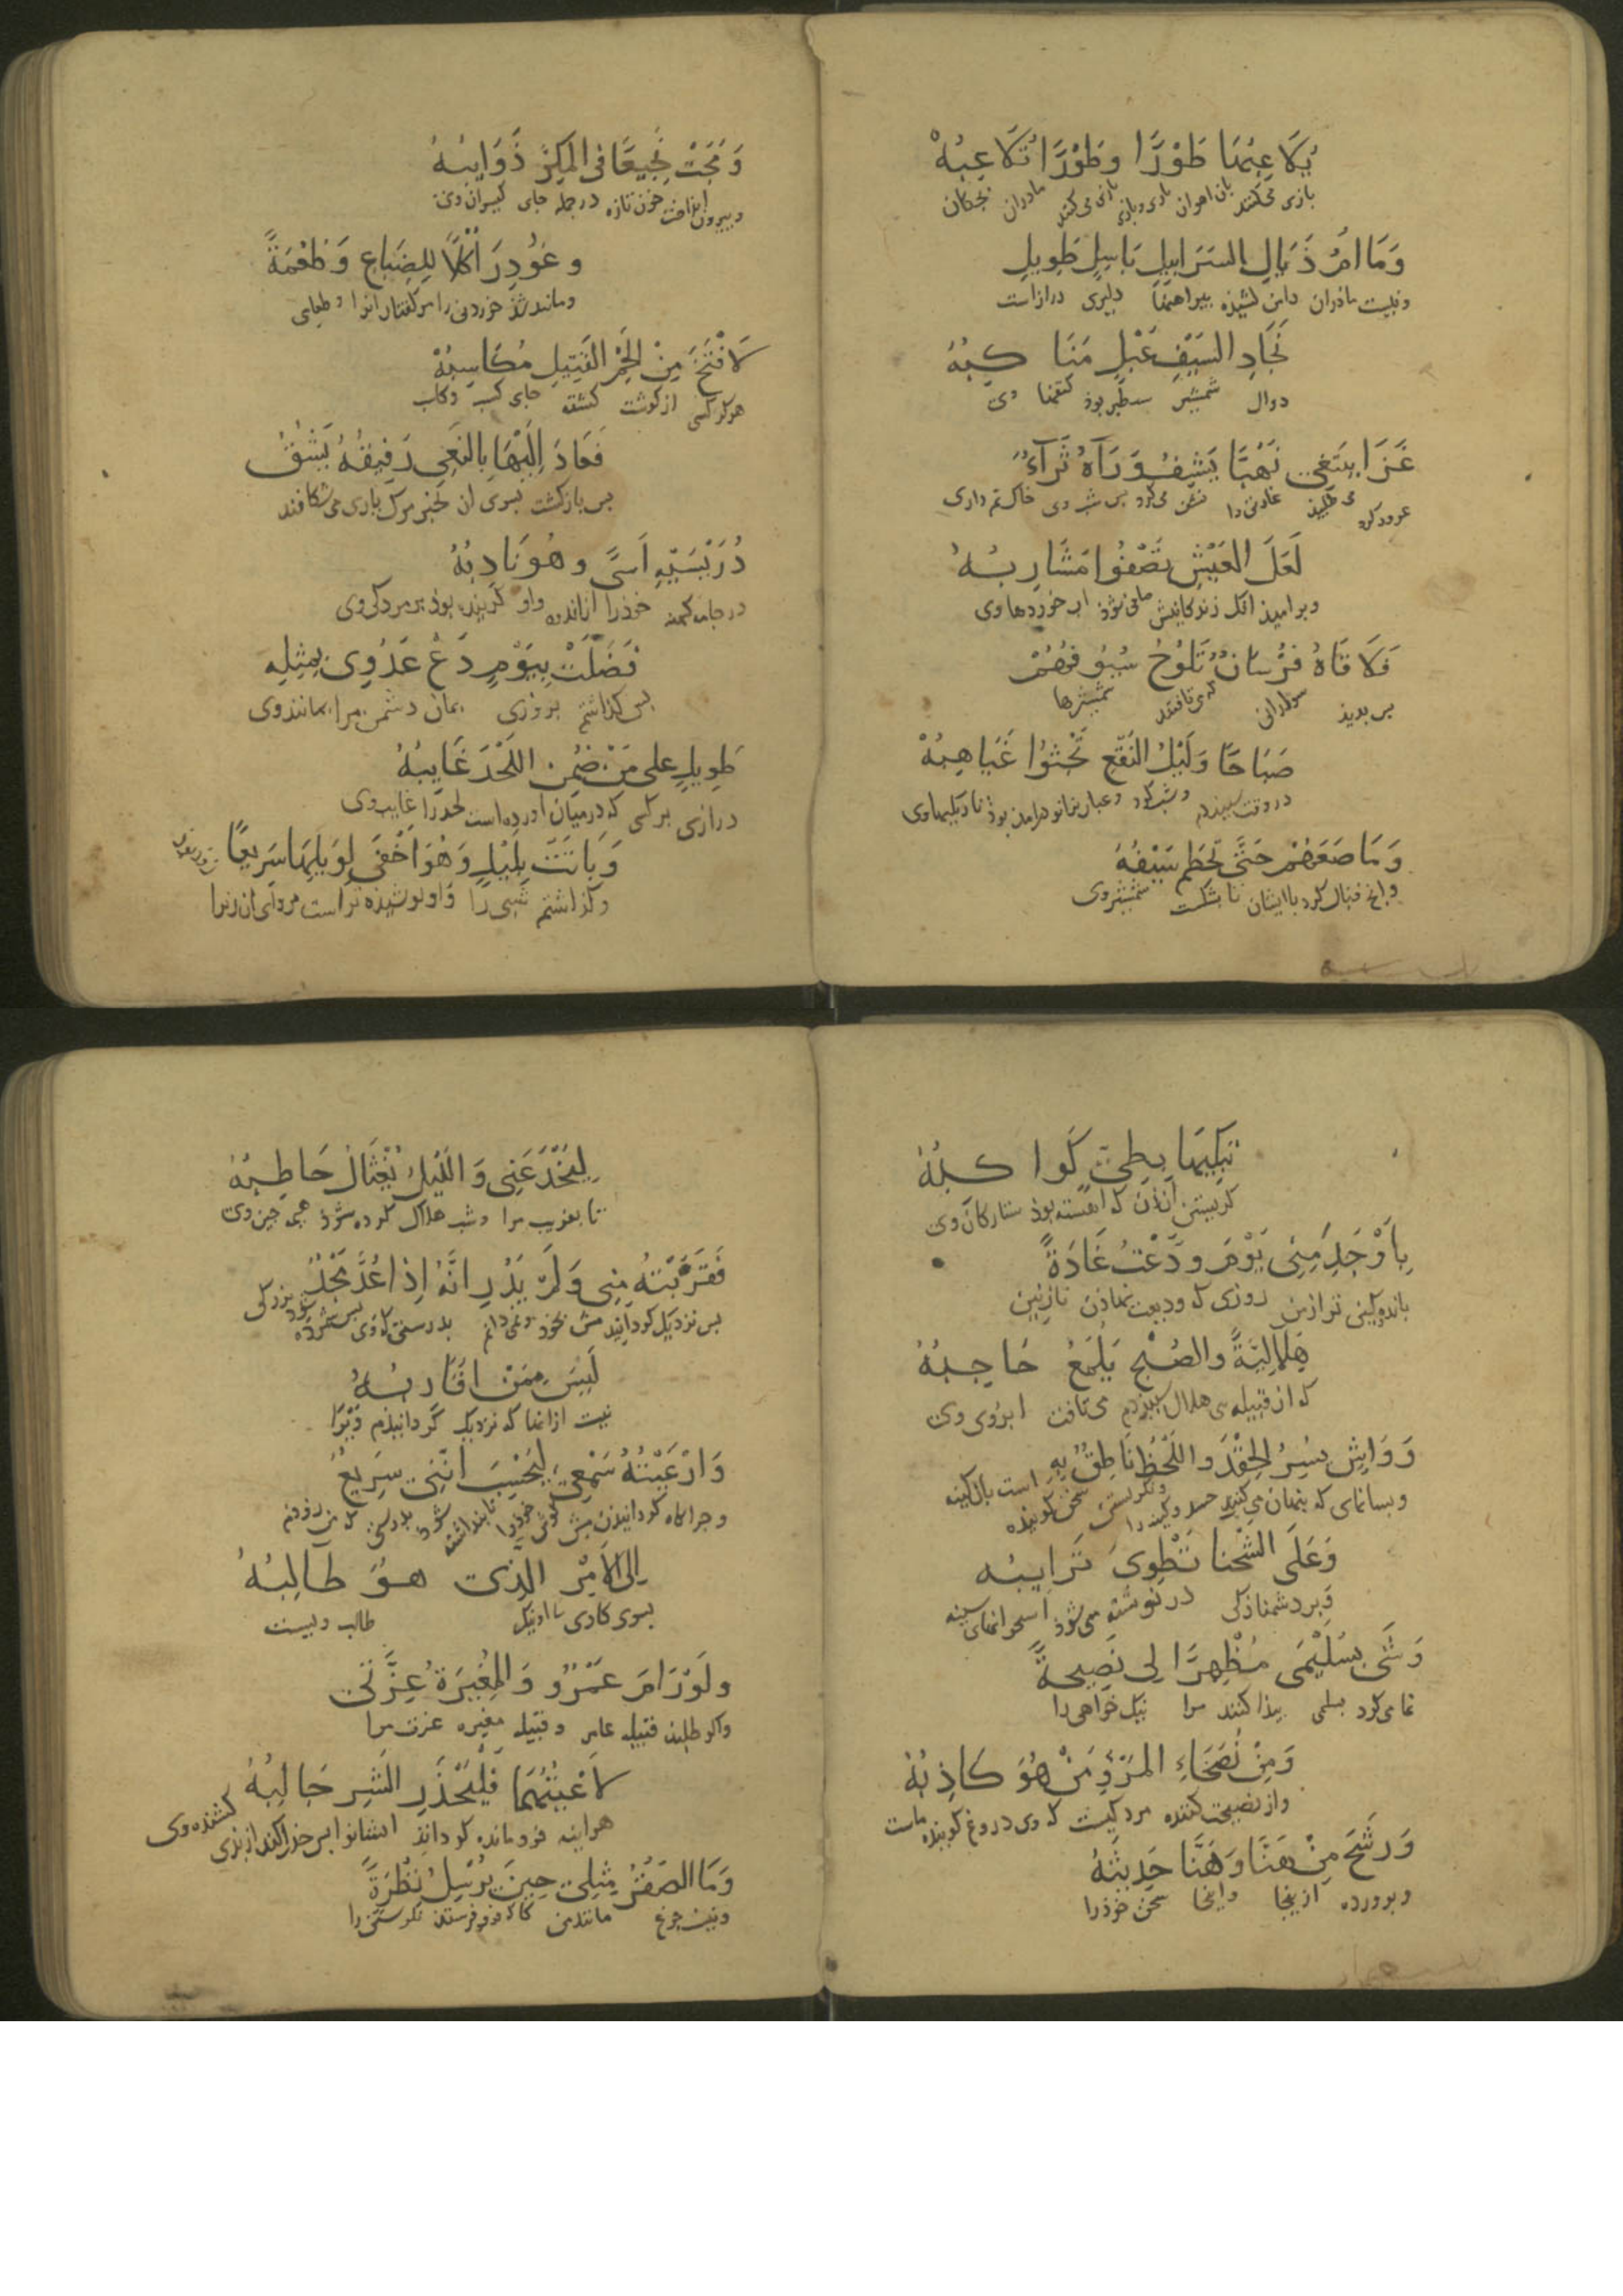 يُلَاعِبُهَا طَوْرًا وَطَوْرًا تُلَاعِبُهْ
بازی می کنند بان اهوان باری و باری بازی می کنند مادران بچکان
وَمَا امُّ ذَيَّالِ السَّرَابِيلِ بَاسِلٍ طَوِيلِ
ونیست مادران دامن کشیده پیراهنها دلیری درازاست
نِجَادِ السَّيْفِ عَبْلٍ مَنَاكِبُهُ
دوال شمشیر سطبر بوذ کتفها وی
غَزَا يبتَغِي نَهْبًا يَشِفُّ وَرَآهُ ثَرَآءٌ
غزو کرد می طلبید غارتی را
لَعَلَّ العَيْشَ تَصْفُوا مَشَارِبُهُ
وبر امیذ انک زندکانیش صافی شوذ اب خوردها وی
فَلَاقَاهُ فُرْسَانٌ تَلُوحُ سُيُوفُهُمْ
پس بدیذ سوارانی که می تافتند شمشیرها
صَبَاحًا وَلَيْلُ النَّقْعِ تَحْثُوا غَيَاهِبُهْ
در وقت سپیددم وشب کرد
وَمَا صَعَهُمْ حَتَّى تَحَطَّمَ سَيْفُهُ
قتال کرد با ایشان تا بشکست شمشیر وی
وَمَجَّتْ نَجِيعًا فِي المَكَرِّ ذَوَايِبُهُ
وبیرون انداخت خون تازه در حمله جای کیسوان وی
وغُودِرَ اُكْلًا لِلضِّبَاعِ وَطُعْمَةً
وماندشذ خوردنی را مر کفتاران را وطعامی
لَافْتَخَ مِنْ لَحْمِ القَتِيلِ مُكَاسِبُهْ
هر کرکسی از کوشت کشته جای کسب وکاب
فَعَادَ اِلَيْهَا بِالنَّعِيِ رَفِيقُهُ يَشُقُّ
پس بازکشت بسوی ان بخبر مرک یاری می شکافند
دُرَيْسَيْهِ اَسًى وهُوَ نَادِبُهُ
در جامه کهنه خوذرا از اندوه واو کرینده بوذ بر مردکی وی
فَضَلَّتْ بِيَوْمٍ دَعْ عَدُوِي بِمِثْلِهِ
پس کذاشتم بروزی بمان دشمن مرا بمانند وی
طَوِيلٍ على مَنْ ضُمِّنَ اللَّحْدَ غَايِبُهُ
درازی بر کسی که در میان اورده است لحدرا غایب وی
وَبَاتَتْ بِلَيْلٍ وَهْوَ اَخْفَى لِوَيْلِهَا سَرِيعًا
وکذاشتم شبی را واو پوشیذه تر است مر وای ان زنرا
تَبَكِّيهَا بَطِيٍّ كَوَاكِبُهُ
کریستن ان زن که اهسته بوذ ستارکان وی
بِاَوْجَدَ مِنِّي يَوْمَ ودَّعْتُ غَادَةً
باندوکینی تر از من روزی که ودیعت نهاذن نازنین
هِلَالِيَّةً والصُّبْحُ يَلْمَعُ حَاجِبُهُ
که از قبیله بنی هلال سپیزدم می تافت ابروی وی
وَوَاشٍ يُسِرُّ الحِقْدَ واللَّحْظُ نَاطِقٌ بِهِ
وبسانمای که پنهان می کنند حسد وکینه را ونکریستن سخن کوینده است بان کینه
وَعَلَى الشَّحْنَا تَنْطَوِى تَرَايِبُه
وبر دشمناذکی در نوشته می شوذ استخوانهای سینه
وَشَى بِسُلَيْمَى مُظْهِرًا لِى نَصِيحَةً
نمامی کرد بسلمی پیذا کنند مرا نیک خواهی را
وَمِنْ نُصَحَاءِ المَرْءِ مَنْ هُوَ كَاذِبُهُ
واز نصیحت کننده مرد کیست که وی دروغ کوینده ماست
وَرَشَّحَ مِنْ هَنَّا وَهَنَّا حَدِيثَهُ
وپرورده ازینجا وانجا سخن خوذرا
لِيَخْدَعَنِى وَاللَّيْلُ يُغْتَالُ حَاطِبُهُ
تا بفریب مرا وشب هلاک کرده شوذ هیمه چین وی
فَقَرَّبْتُهُ مِنِى وَلَمْ يَدْرِ اَنَّهُ اِذَا عُدَّ مَجْدٌ
پس نزدیک کردانیذمش بخوذ ونمی دانم بدرستی که وی بس شمرده شوذ بزرکی
لَيْسَ مِمَنْ اقَارِبُهُ
نیست ازانها که نزدیک کردانیذم ویرا
وَارْعَيْتُهُ سَمْعِى لِيَحْسِبَ اَنَّنِى سَرِيعٌ
وچراکاه کردانیدمش کوش خوذرا تا پنداشته شوذ بدرستی که من زودم
اِلى الاَمْرِ الَّذِى هوَ طَالِبُهُ
بسوی کاری تا اونیک طالب ویست
ولَوْ رَامَ عَمْرٌو وَالمُغِيرَةُ عِزَّتى
واکر طلبند قبیله عامر وقبیله مغیره عزت مرا
لَاعْيَيْتُهُمَا فَلْيَحْذَرِ الشَّرَ جَالِبُهُ
هراینه فرومانده کردانذ ایشانرا پس حذر کنداز بذی کشنده وی
وَمَا الصَّقْرُ مِثْلِى حِينَ يُرْسِلُ نَظْرَةً
ونیست چرغ مانند من کاه فرو فرستذن نکرستن را